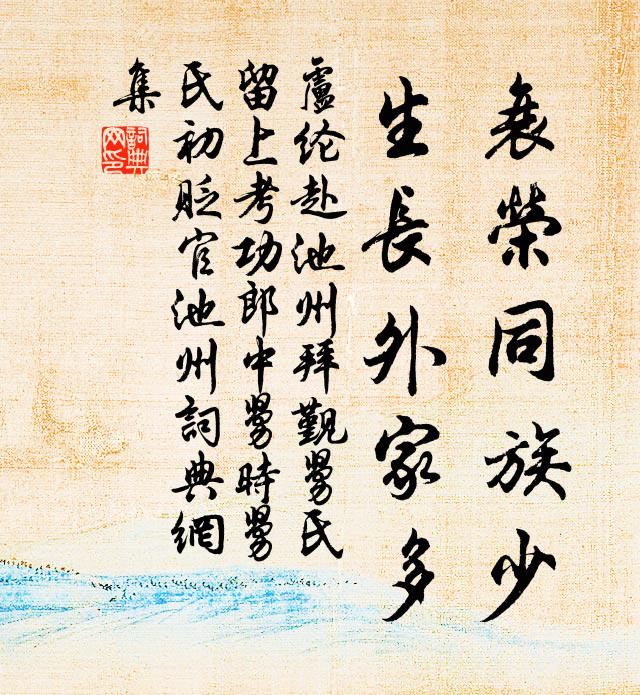 衰榮同族少
生長外家多
盧綸赴池州拜覲舅氏
留上考功郎中舅時舅
氏初貶官池州詞典網
集
詞典网印